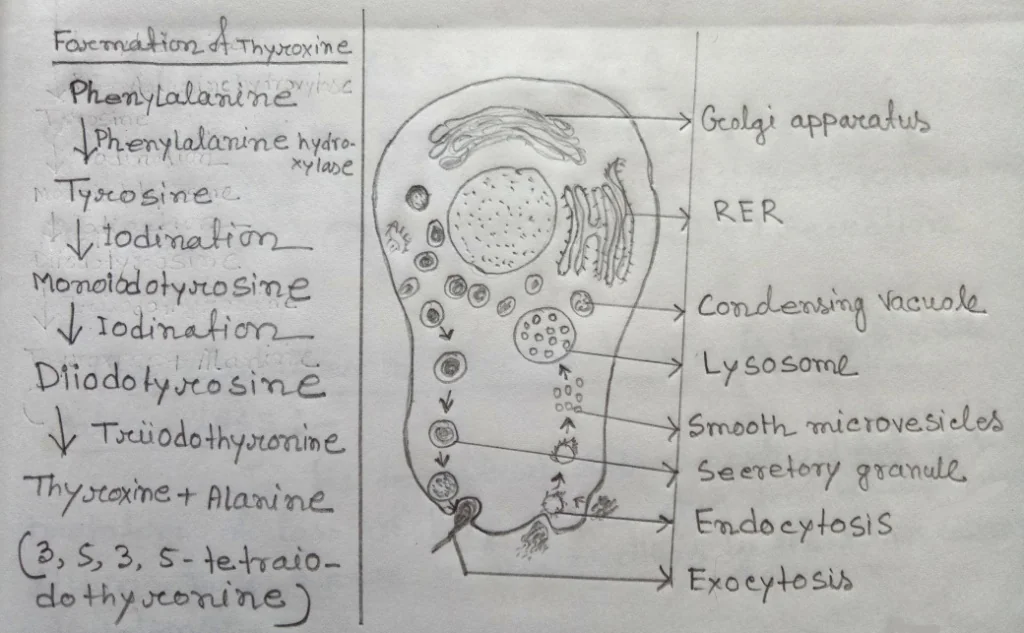 Formation of Thyroxine
Phenylalanine
Phenylalanine hydro-
xylase
Tyrosine
Iodination
Monoiodotyrosine
Iodination
Diiodotyrosine
Triiodothyronine
Thyroxine + Alanine
(3, 5, 3, 5-tetraio-
dothyronine)
Golgi apparatus
RER
Condensing vacuole
Lysosome
Smooth microvesicles
Secretory granule
Endocytosis
Exocytosis